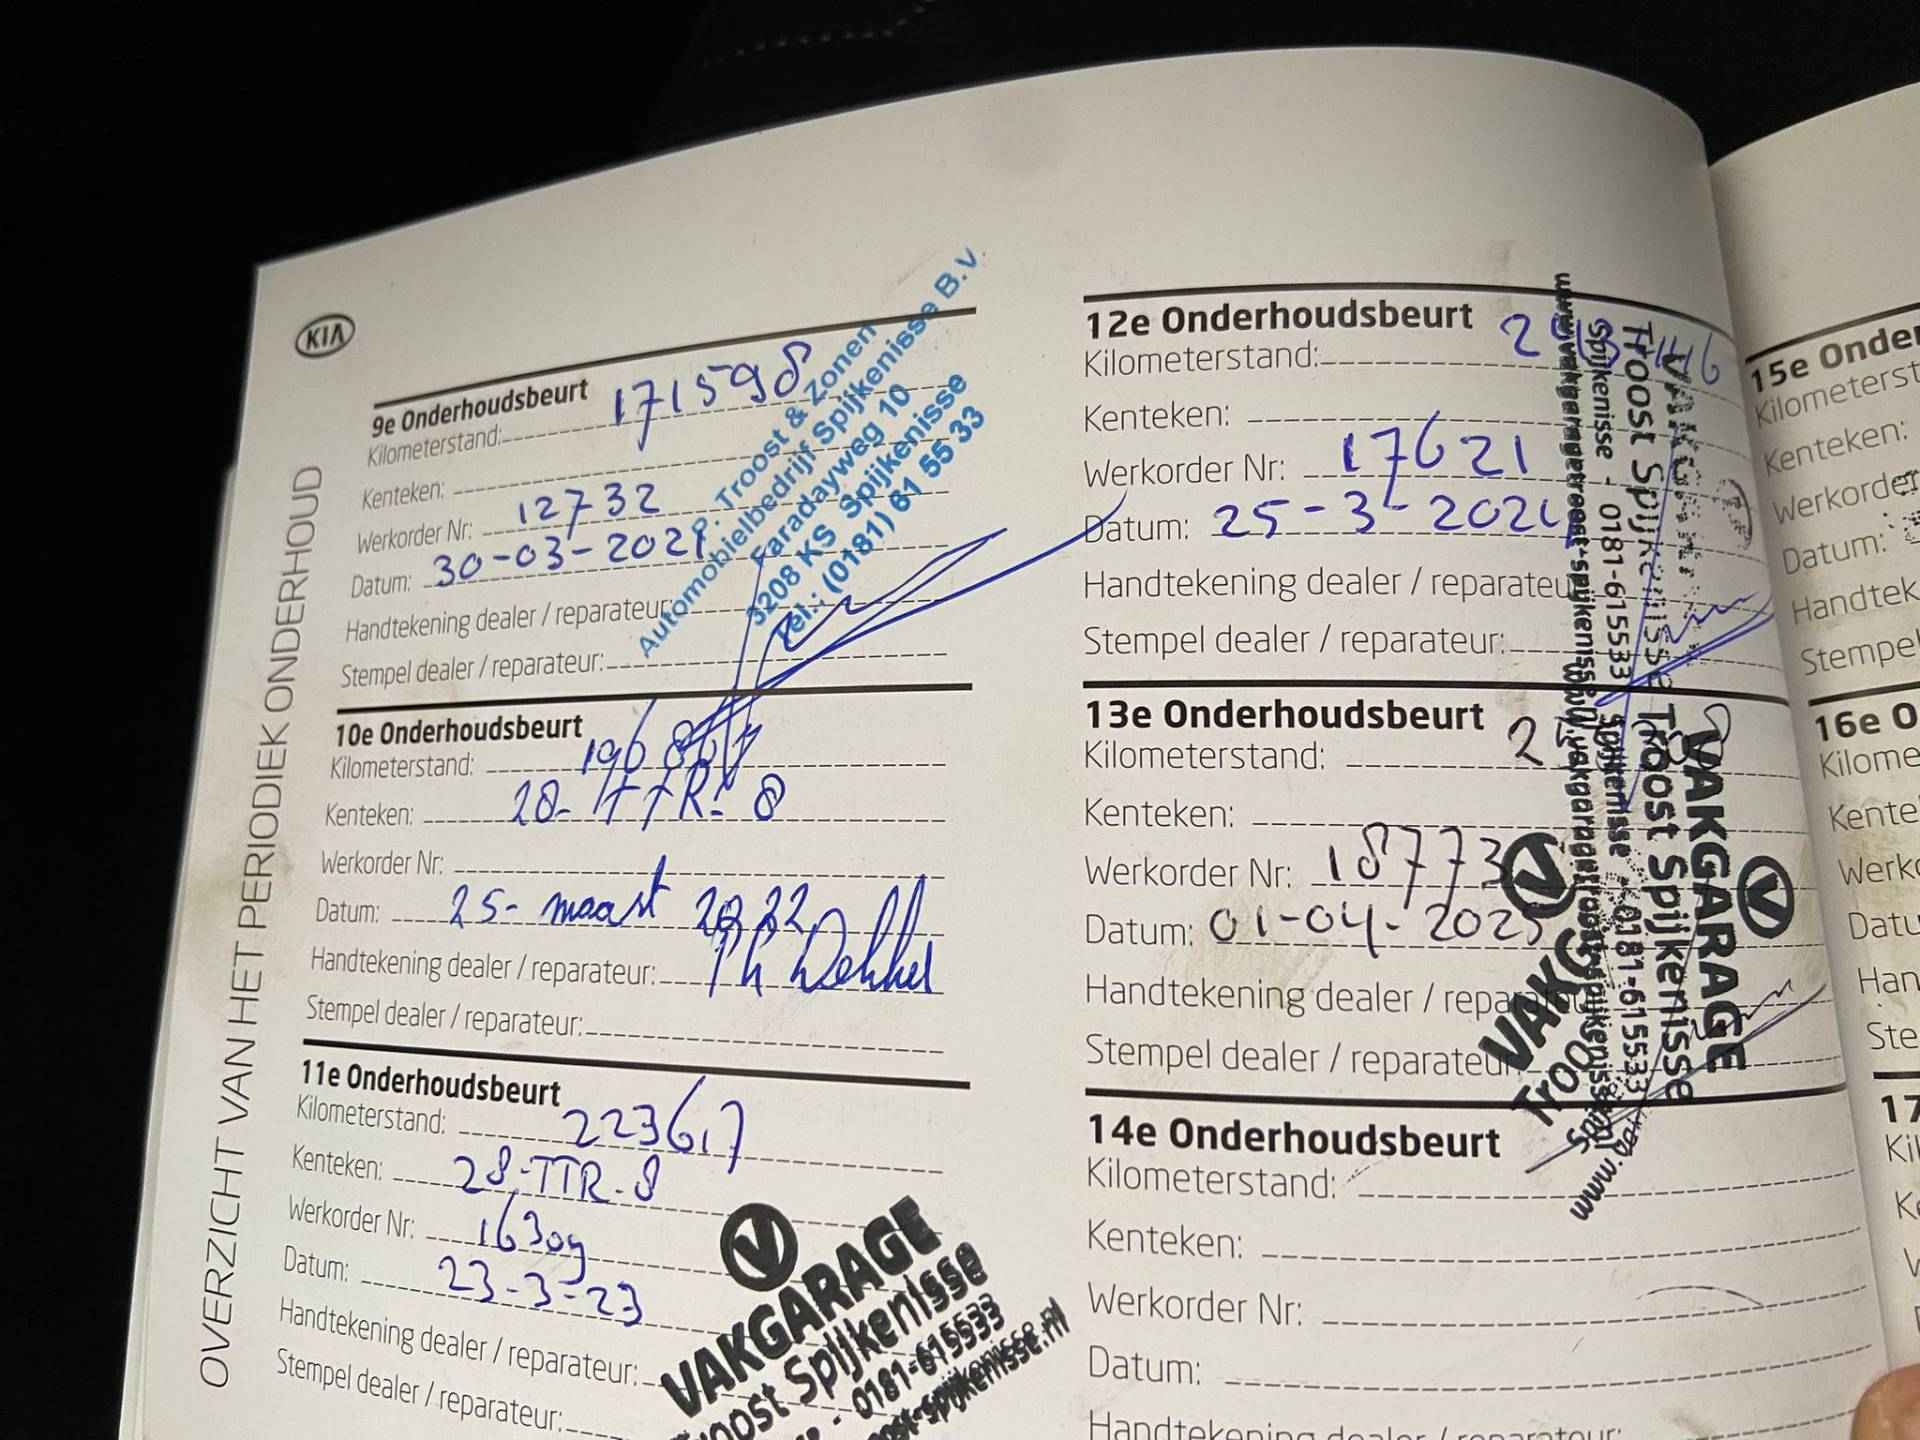 KIA
OVERZICHT VAN HET PERIODIEK ONDERHOUD
9e Onderhoudsbeurt
Kilometerstand: 171598
Kenteken:
Werkorder Nr: 12732
Datum: 30-03-2021
Handtekening dealer / reparateur:
Stempel dealer / reparateur:
P. Troost & Zonen
Automobielbedrijf Spijkenisse B.V.
Faradayweg 10
3208 KS Spijkenisse
Tel.: (0181) 61 55 33
10e Onderhoudsbeurt
Kilometerstand:
Kenteken:
Werkorder Nr:
Datum: 25- maart 2022
Handtekening dealer / reparateur:
Stempel dealer / reparateur:
11e Onderhoudsbeurt
Kilometerstand: 223617
Kenteken: 28-TTR-8
Werkorder Nr: 16309
Datum: 23-3-23
Handtekening dealer / reparateur:
Stempel dealer / reparateur:
VAKGARAGE
Troost Spijkenisse
0181-615533
12e Onderhoudsbeurt
Kilometerstand:
Kenteken:
Werkorder Nr: 17621
Datum: 25-3-202
Handtekening dealer / reparateur
Stempel dealer / reparateur:
VAKGARAGE
Troost Spijkenisse
Spijkenisse - 0181-615533
www.vakgaragetroost-spijkenisse.nl
13e Onderhoudsbeurt
Kilometerstand:
Kenteken:
Werkorder Nr: 18773
Datum: 01-04-2025
Handtekening dealer / reparateur
Stempel dealer / reparateur
VAKGARAGE
Troost Spijkenisse
Spijkenisse - 0181-615533
14e Onderhoudsbeurt
Kilometerstand:
Kenteken:
Werkorder Nr:
Datum:
Handtekening dealer / reparateur:
15e Onder
Kilometerst
Kenteken:
Werkorder
Datum:
Handtek
Stempel
16e O
Kilome
Kente
Werko
Datu
Han
Ste
17
Kil